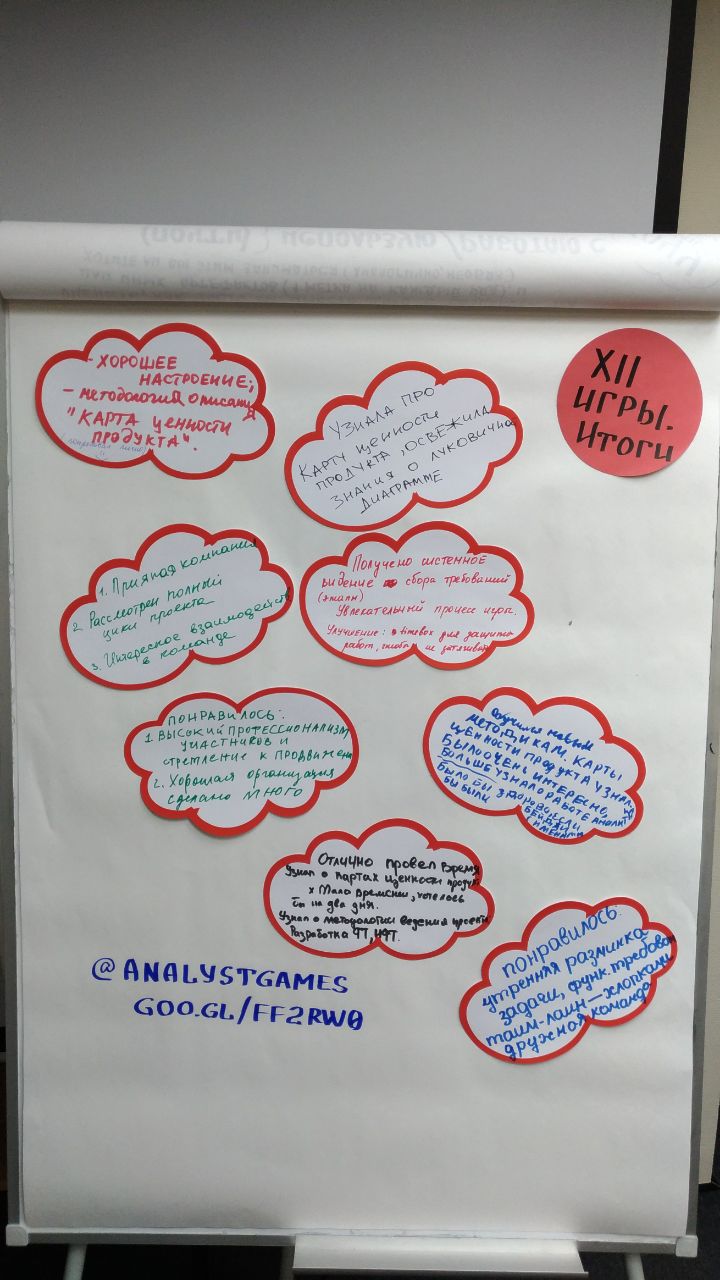 XII
ИГРЫ.
Итоги
- ХОРОШЕЕ
НАСТРОЕНИЕ;
- методология описания
"КАРТА ЦЕННОСТИ
ПРОДУКТА".
УЗНАЛА ПРО
КАРТУ ЦЕННОСТИ
ПРОДУКТА, ОСВЕЖИЛА
ЗНАНИЯ О ЛУКОВИЧНОЙ
ДИАГРАММЕ
1. Приятная компания
2. Рассмотрен полный
цикл проекта
3. Интересное взаимодейств
в команде
Получено системное
видение сбора требований
(эталон)
Увлекательный процесс игры.
Улучшение: timebox для защиты
работ, чтобы не затягивать
ПОНРАВИЛОСЬ:
1. ВЫСОКИЙ ПРОФЕССИОНАЛИЗМ
УЧАСТНИКОВ И
стремление к продвижен
2. Хорошая организация
сделано МНОГО
Обучилась новым
МЕТОДИКАМ. КАРТЫ
ЦЕННОСТИ ПРОДУКТА УЗНАЛА
БЫЛО ОЧЕНЬ ИНТЕРЕСНО,
БОЛЬШЕ УЗНАЛА О РАБОТЕ АНАЛИТ
БЫЛО БЫ ЗДОРОВО ЕСЛИ
БЫ БЫЛИ БЕЙДЖИ
С ИМЕНАМИ
Отлично провел время
Узнал о картах ценности продукт
х Мало времени, хотелось
бы на два дня.
Узнал о методологии ведения проекта
Разработка ФТ, НФТ.
понравилось:
утренняя разминка
задачи, функ. требован
тайм-лайн — хлопками
дружная команда
@ANALYSTGAMES
GOO.GL/FF2RW0